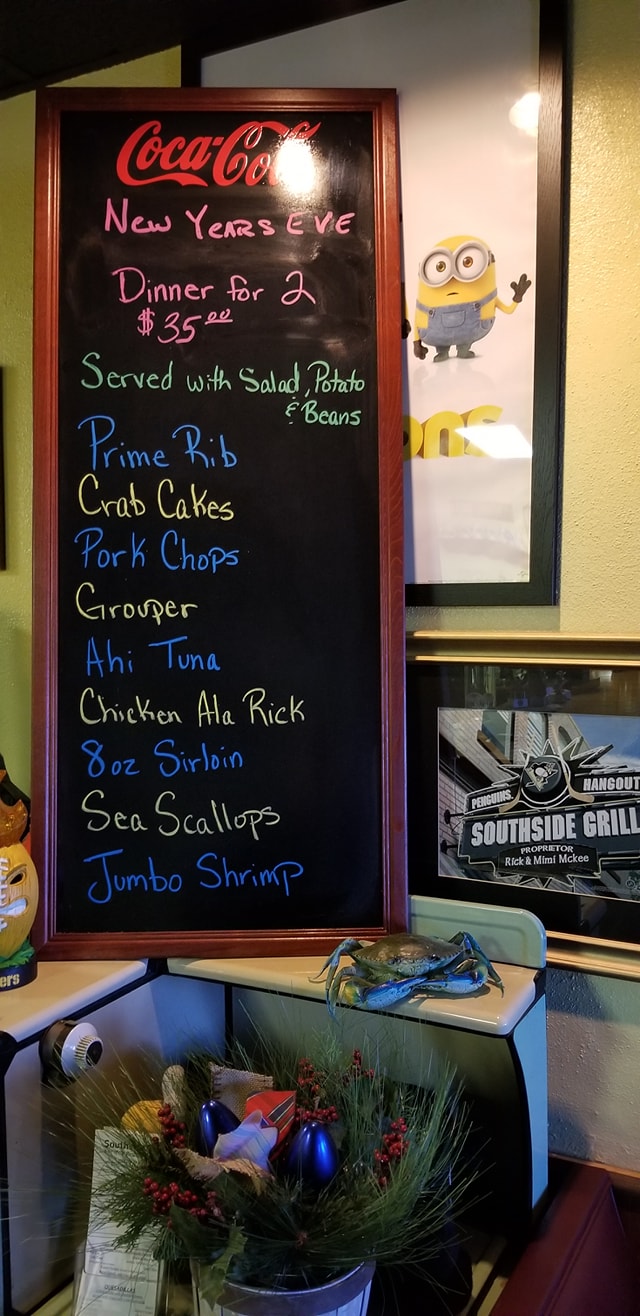 Coca-Cola
New Years Eve
Dinner for 2
$35.00
Served with Salad, Potato
& Beans
Prime Rib
Crab Cakes
Pork Chops
Grouper
Ahi Tuna
Chicken Ala Rick
8oz Sirloin
Sea Scallops
Jumbo Shrimp
ons
PENGUINS HANGOUT
SOUTHSIDE GRILL
PROPRIETOR
Rick & Mimi Mckee
ers
South